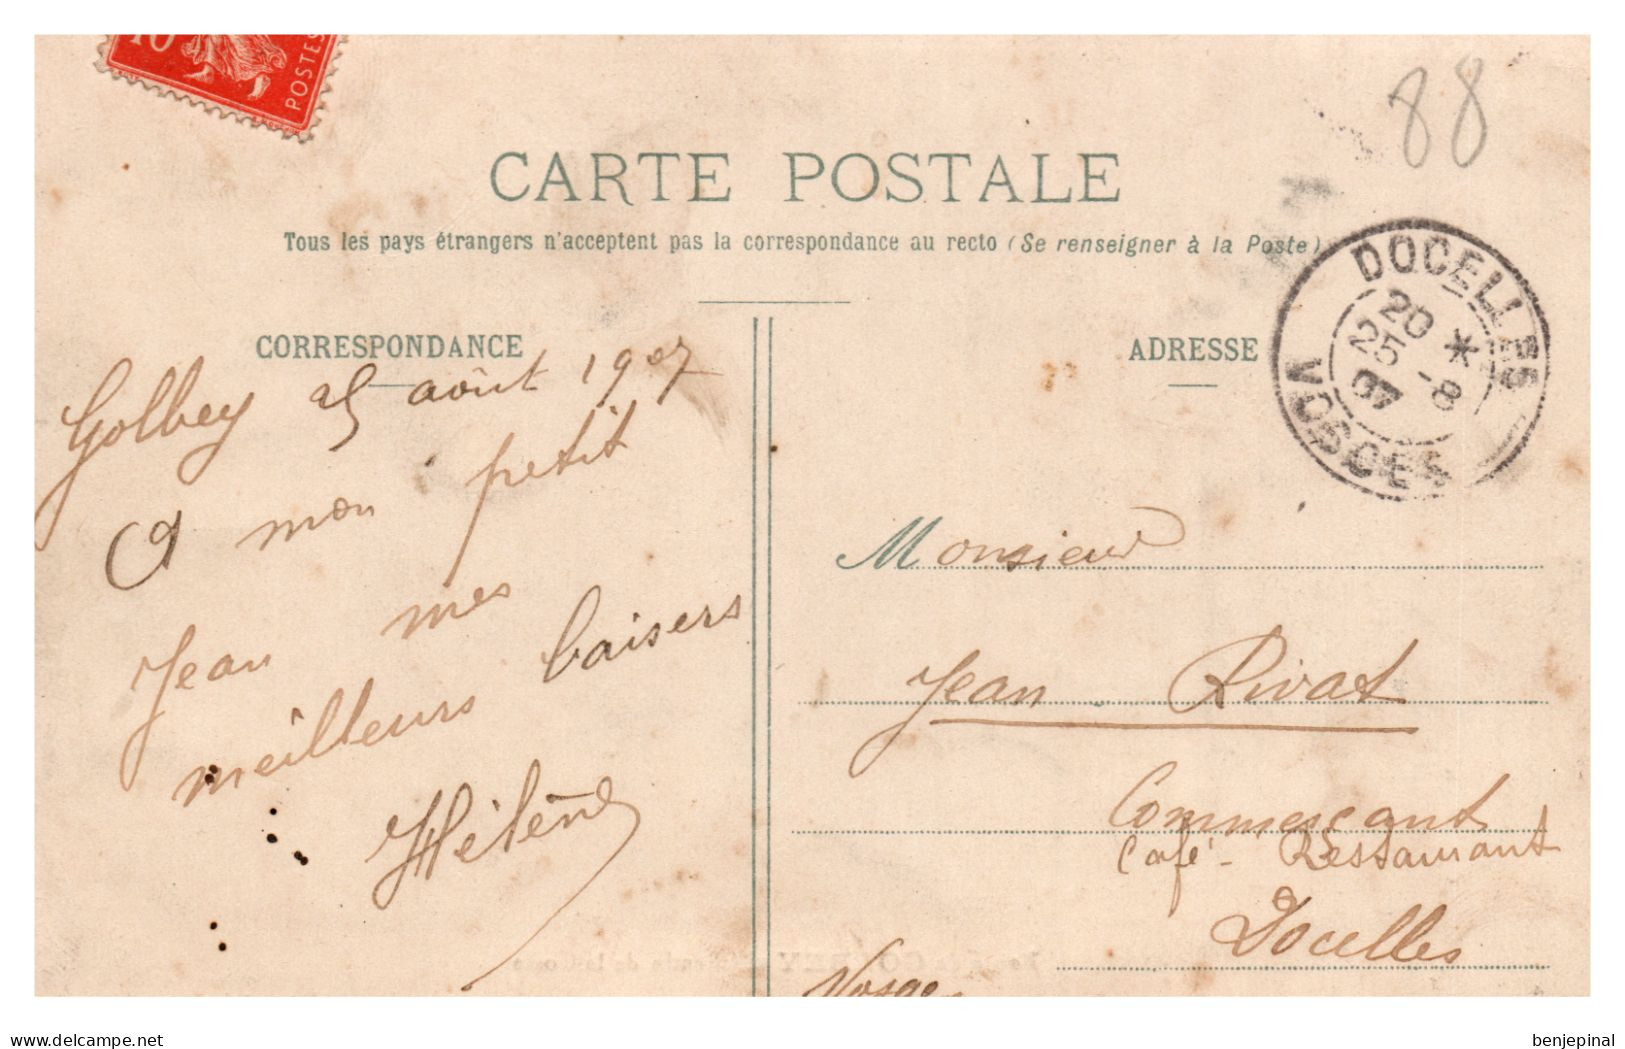 10
POSTES
88
CARTE POSTALE
Tous les pays étrangers n'acceptent pas la correspondance au recto (Se renseigner à la Poste)
DOCELLES
20 *
25 -8
07
VOSGES
CORRESPONDANCE
Golbey 25 août 1907
A mon petit
Jean mes
meilleurs baisers
Hélène
ADRESSE
Monsieur
Jean Rivat
Commerçant
Café-Restaurant
Docelles
Vosges
www.delcampe.net
benjepinal